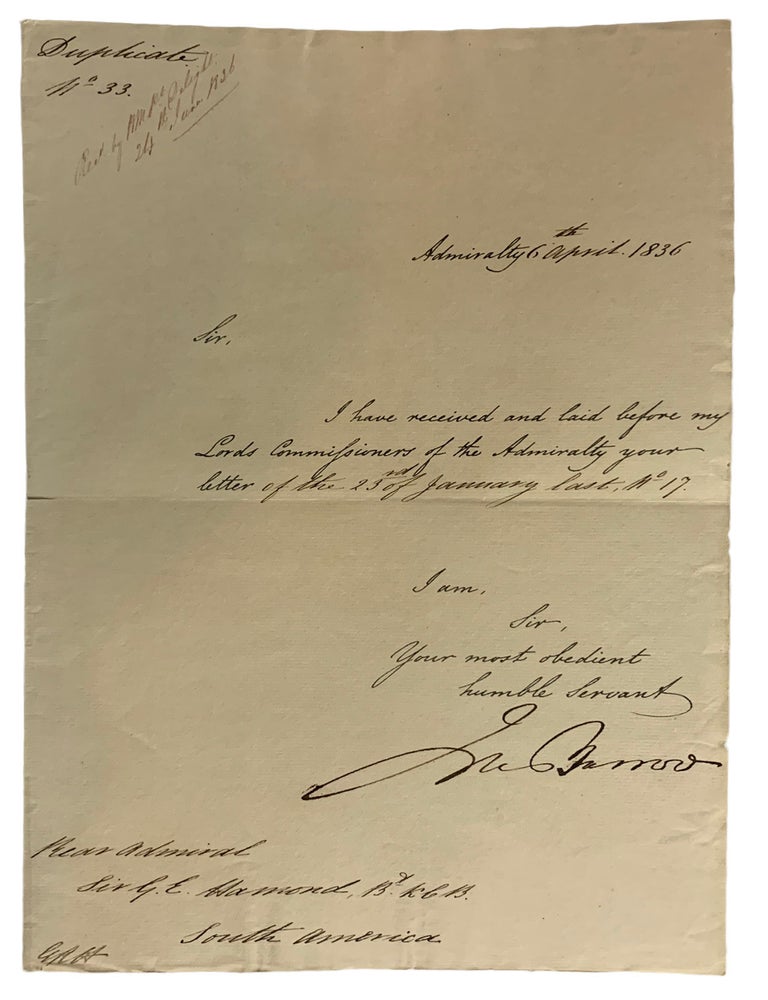 Duplicate
Nº 33.
Recd by HM Pt Delight
24th June 1836
Admiralty 6th April. 1836
Sir,
I have received and laid before my
Lords Commissioners of the Admiralty your
letter of the 23rd of January last, Nº 17.
I am,
Sir,
Your most obedient
humble Servant
Jno Barrow
Rear Admiral
Sir G. E. Hamond, Bt. K C B.
South America